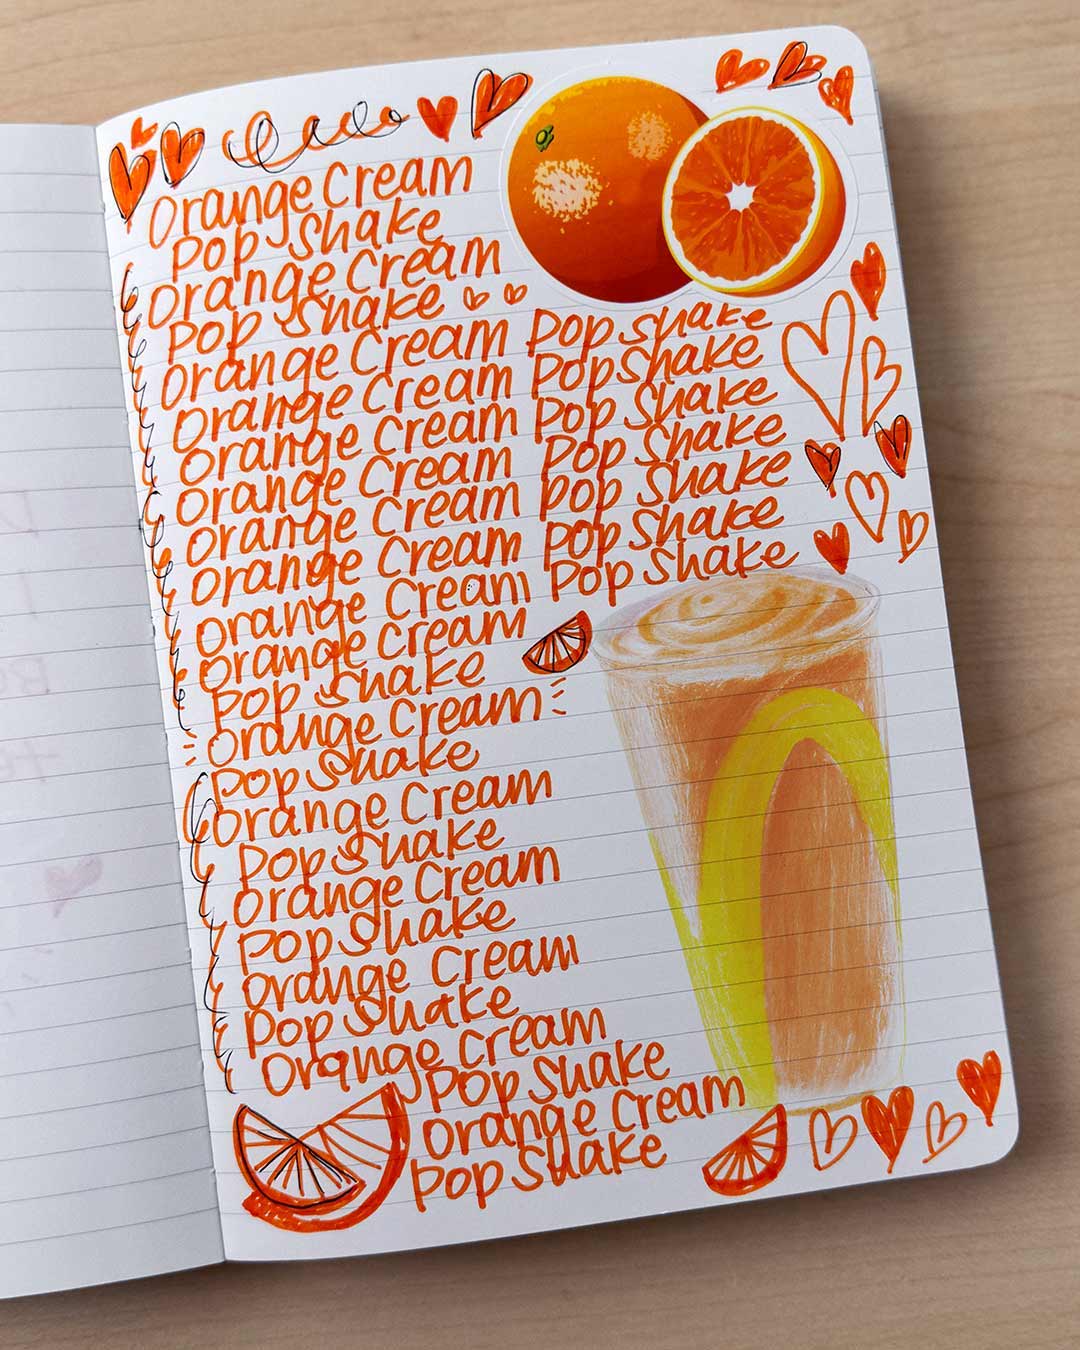 Orange Cream
Pop Shake
Orange Cream
Pop Shake
Orange Cream Pop Shake
Orange Cream Pop Shake
Orange Cream Pop Shake
Orange Cream Pop Shake
Orange Cream Pop Shake
Orange Cream Pop Shake
Orange Cream Pop Shake
Orange Cream
Pop Shake
Orange Cream
Pop Shake
Orange Cream
Pop Shake
Orange Cream
Pop Shake
Orange Cream
Pop Shake
Orange Cream
Pop Shake
Orange Cream
Pop Shake